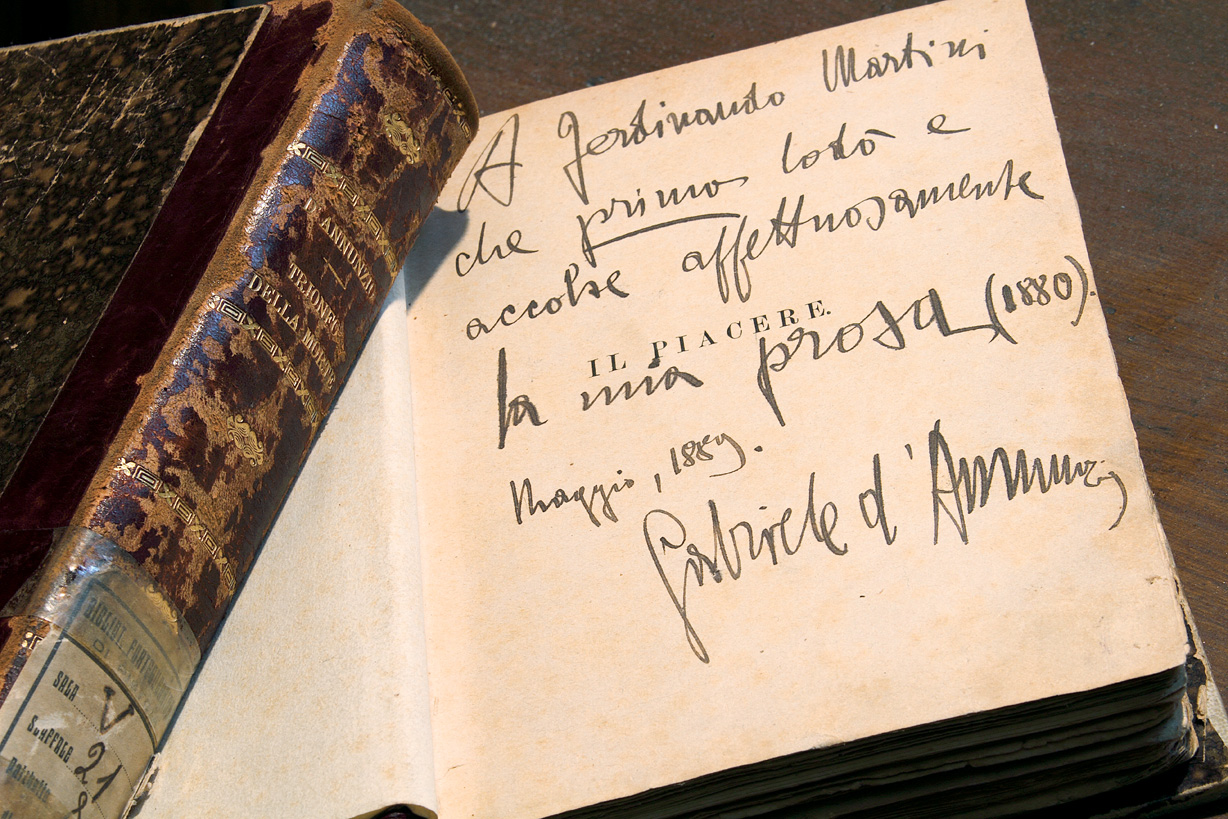 A Ferdinando Martini
che primo lodò e
accolse affettuosamente
IL PIACERE.
la mia prosa (1880).
Maggio, 1889.
Gabriele d'Annunzio
D'ANNUNZIO
TRIONFO
DELLA MORTE
SALA V
SCAFFALE 21